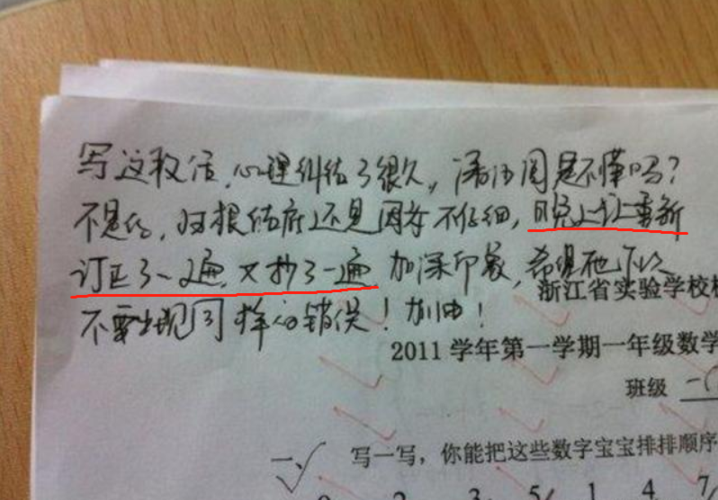 写这段话,心理纠结了很久,潘泊同是不懂吗?
不是的,归根结底还是因为不仔细,晚上让重新
订正了一遍,又抄了一遍,加深印象,希望他下次
不要出现同样的错误!加油!
浙江省实验学校
2011 学年第一学期一年级数学
班级 一(
一、 写一写,你能把这些数字宝宝排排顺序
2 3 5 1 4 7